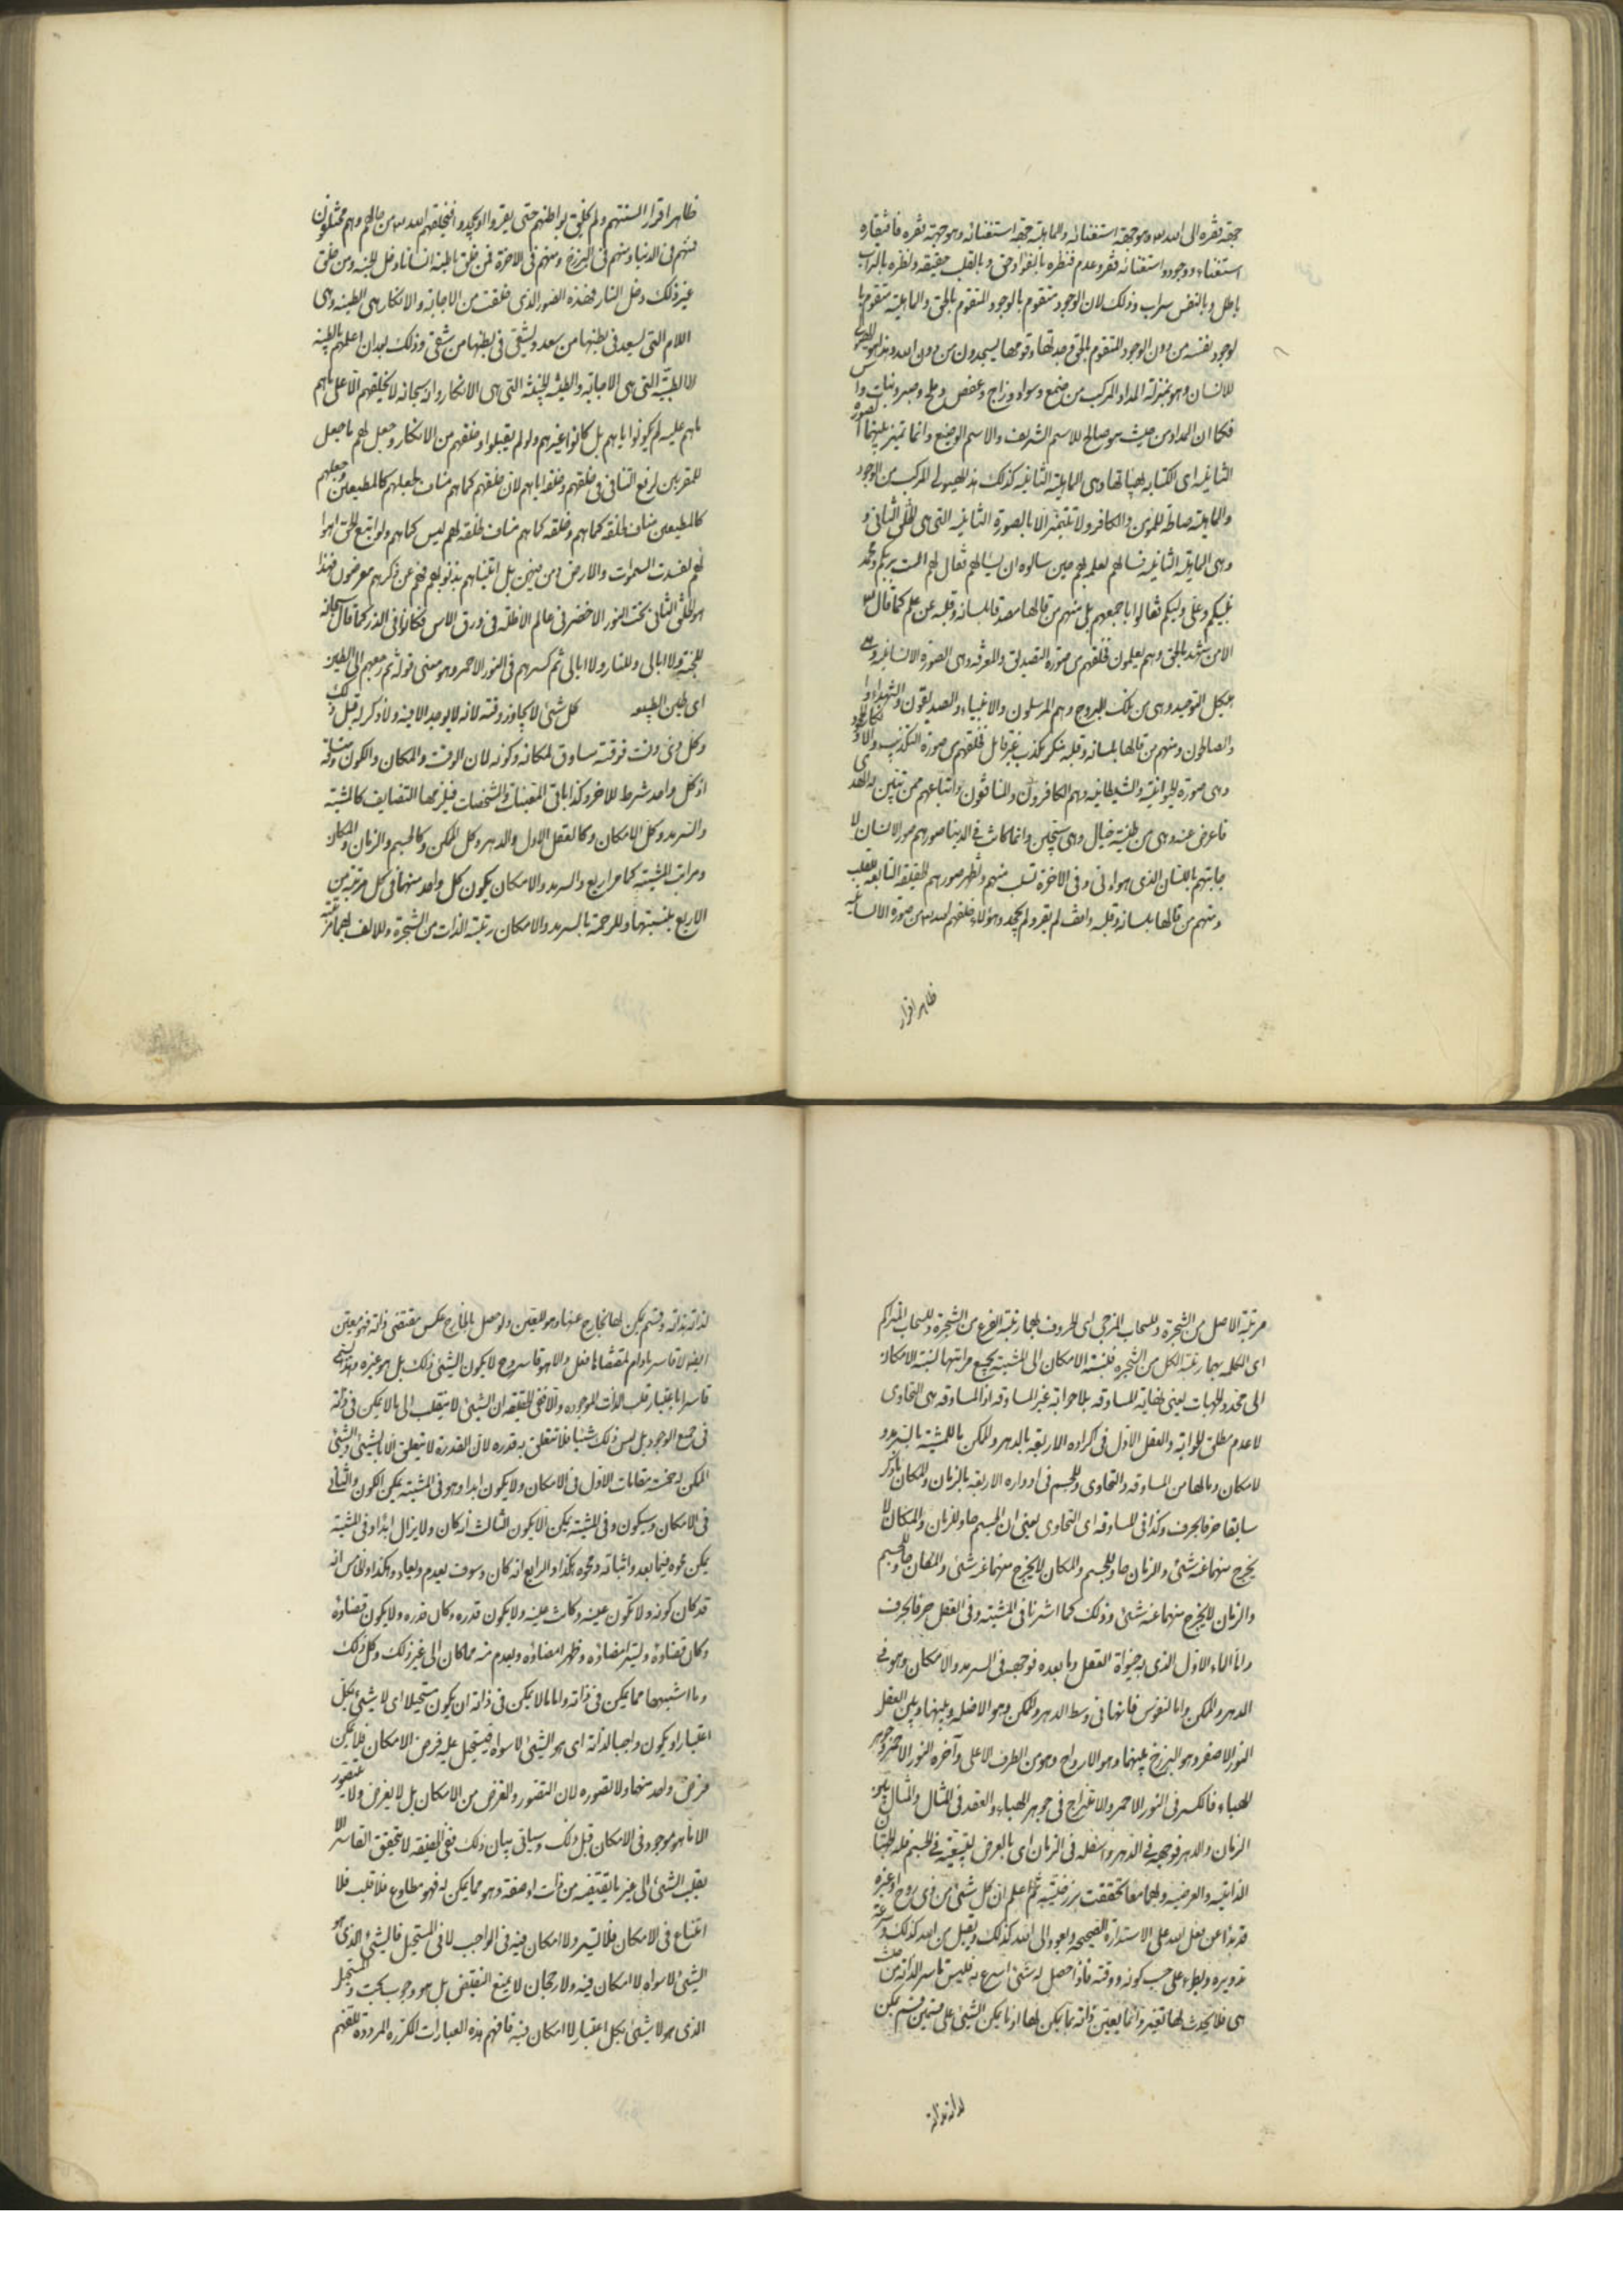 جهة فقره الى الله سبحانه وهو جهة استغنائه والماهية جهة استغنائه وهو جهة فقره فافتقاره
استغناء ووجود واستغنائه فقر وعدم فنظره بالفؤاد حق وبالقلب حقيقة ونظره بالتراب
باطل وبالنفس سراب وذلك لان الوجود متقوم بالوجود المتقوم بالحق والماهية متقومة با
لوجود نفسه من دون الوجود المتقوم بالحق وجدتها وقومها يسجدون من دون الله وهذا هو الهيولى
للانسان وهو بمنزلة المداد المركب من صمغ وسواد وزاج وعفص وملح وصبر ونبات وآس
فكما ان المداد من حيث هو صالح للاسم الشريف والاسم الوضيع وانما تميز بينهما الصورة
الثانية اى الكتابة بهيئاتها وهى الماهية الثانية كذلك هذا الهيولى المركب من الوجود
والماهية صالحة للمؤمن والكافر ولا تتميز الا بالصورة الثانية التى هى الخلق الثانى و
وهى الماهية الثانية فسالهم لعلمه بهم حين سالوه ان يسالهم فقال لهم الست بربكم ومحمد
نبيكم وعلى وليكم فقالوا باجمعهم بلى منهم من قالها مصدقا بلسانه وقلبه عن علم كما قال الله
الا من شهد بالحق وهم يعلمون فخلقهم من صورة التصديق والمعرفة وهى الصورة الانسانية وهى
هيكل التوحيد وهى من تلك البروج وهم المرسلون والانبياء والصديقون والشهداء و
والصالحون ومنهم من قالها بلسانه وقلبه منكر مكذب غير قابل فخلقهم من صورة التكذيب والانكار
وهى صورة الحيوانية والشيطانية وهم الكافرون والمنافقون واتباعهم ممن تبين له الهدى
فاعرض عنه وهى من طينة خبال وهى سجين وانما كانت فى الدنيا صورهم صور الانسان لا
جابتهم باللسان الذى هو ادنى وفى الاخرة تسلب منهم وتظهر صورهم الحقيقة التابعة للقلب
ومنهم من قالها بلسانه وقلبه واقف لم يقر ولم يجحد وهؤلاء خلقهم الله من صورة الانسانية
ظاهر اقرار
ظاهر اقرار السنتهم ولم يخلق بواطنهم حتى يقروا او يجحدوا فيخلقهم الله من حالهم وهم مختلفون
فمنهم فى الدنيا ومنهم فى البرزخ ومنهم فى الاخرة فمن خلق باطنه انسانا دخل الجنة ومن خلق
غير ذلك دخل النار فهذه الصور الذى خلقت من الاجابة والانكار هى الطينة وهى
الام التى يسعد فى بطنها من سعد ويشقى فى بطنها من شقى وذلك بعد ان اعلمهم بالطينة
الطيبة التى هى الاجابة والطينة الخبيثة التى هى الانكار وانه سبحانه لا يخلقهم الا على ما هم
ما هم عليه لم يكونوا اياهم بل كانوا غيرهم ولو لم يقبلوا وخلقهم من الانكار وجعل لهم ما جعل
للمقربين لزم التنافى فى خلقهم وخلقه اياهم لان خلقهم كما هم مناف لجعلهم كالمطيعين وجعلهم
كالمطيعين مناف لخلقه كما هم وخلقه كما هم مناف لخلقه لهم ليس كما هم ولو اتبع الحق اهوا
ئهم لفسدت السموات والارض ومن فيهن بل اتيناهم بذكرهم فهم عن ذكرهم معرضون فهذا
هو الخلق الثانى تحت النور الاخضر فى عالم الاظلة فى ورق الاس فكانوا فى الذر كما قال سبحانه
للجنة ولا ابالى وللنار ولا ابالى ثم كسرهم فى النور الاحمر وهو معنى قوله ثم رجعهم الى الطين
اى طين الطبيعة كل شئ لا يجاوز وقته لانه لا يوجد الا فيه ولا ذكر له قبل ذلك
وكل ذى وقت فوقته مساوق لمكانه وكونه لان الوقت والمكان والكون
اذ كل واحد شرط للاخر وكذا باقى التعينات والمشخصات فيلزمها التضايف كالمشية
والسرمد وكل الامكان وكالعقل الاول والدهر وكل الممكن وكالجسم والزمان والمكان
ومراتب المشية كما مر اربع والسرمد والامكان يكون كل واحد منهما فى كل مرتبة من
الاربع بنسبتها وللرحمة بالسرمد والامكان رتبة الذات من الشجرة وللالف بهما مرتبة
مرتبة الاصل من الشجرة وللسحاب المزجى اى الحروف لهما رتبة الفرع من الشجرة وللسحاب المتراكم
اى الكلمة بهما رتبة الكل من الشجرة فنسبة الامكان الى المشية بجميع مراتبها كنسبة الامكان
الى محدد الجهات يعنى نهاية المساوقة بلا حواية غير المساوقة اذ المساوقة هى التحاوى
لا عدم مطلق الحواية والعقل الاول فى اكواره الاربعة بالدهر والممكن كالمشية بالسرمد وا
لامكان وما لها من المساوقة والتحاوى وللجسم فى ادواره الاربعة بالزمان والمكان ما ذكر
سابقا حرفا بحرف وكذا فى المساوقة اى التحاوى يعنى ان الجسم حاو للزمان والمكان لا
يخرج منهما عنه شئ والزمان حاو للجسم والمكان لا يخرج منهما عنه شئ والمكان حاو للجسم
والزمان لا يخرج منهما عنه شئ وذلك كما اشرنا فى المشية وفى العقل حرفا بحرف
واما الماء الاول الذى به حيوة العقل وما بعده فوجهه فى السرمد والامكان وهو فى
الدهر والممكن واما النفوس فانها فى وسط الدهر والممكن وهو الاضلة وبينها وبين العقل
النور الاصفر وهو البرزخ بينهما وهو الارواح وهو من الطرف الاعلى وآخره النور الاحمر وجوهر
الهباء فالكسر فى النور الاحمر والامتزاج فى جوهر الهباء والعقد فى المثال والمثال بين
الزمان والدهر فوجهه فى الدهر واسفله فى الزمان اى بالعرض لتبعيته فى الجسم فله الجهتان
الذاتية والعرضية ولهما معا تحققت برزخيته ثم اعلم ان كل شئ من ذى روح او غيره
قد بدأ من فعل الله على الاستدارة الصحيحة ويعود الى الله كذلك ويقبل من الله كذلك وسرعة
تدويره وبطؤه على حسب كونه ووقته فاذا حصل له شئ اسرع به فليس قاسر لذاته من حيث
هى فلا يحدث لها تغير وانما يعين ذاته بما يمكن لها اذ ما يمكن الشئ على قسمين قسم يمكن
لذاته بذاته
لذاته بذاته وقسم يمكن لها بخارج عنها وهو المعين ولو حصل بالخارج عكس مقتضى ذاته فهو معين
ايضا لا قاسر ما دام لمقتضاها فعل والا هو قاسر وح لا يكون الشئ ذلك بل هو غيره وقد يسمى
قاسرا باعتبار قلب الذات الموجودة والا ففى الحقيقة ان الشئ لا ينقلب الى ما لا يمكن فى ذاته
فى جميع الوجود بل ليس ذلك شيئا فلا تتعلق به قدرة لان القدرة لا تتعلق الا بالشئ والشئ
الممكن له خمسة مقامات الاول فى الامكان ولا يكون ابدا وهو فى المشية يمكن الكون والثانى
فى الامكان وسيكون وفى المشية يمكن الا يكون الثالث انه كان ولا يزال ابدا وفى المشية
يمكن محوه فيما بعد واثباته ومحوه هكذا والرابع انه كان وسوف يعدم ويعاد وهكذا والخامس انه
قد كان كونه ولا تكون عينه وكانت عينه ولا يكون قدره وكان قدره ولا يكون قضاؤه
وكان قضاؤه وليس امضاؤه وظهر امضاؤه ويعدم منه مما كان الى غير ذلك وكل ذلك
وما اشبهها مما يمكن فى ذاته واما ما لا يمكن فى ذاته ان يكون مستحيلا اى لا شئ بكل
اعتبار او يكون واجبا لذاته اى هو الشئ لا سواه فيستحيل عليه فرض الامكان فلا يمكن
فرض واحد منها ولا تصوره لان التصور والفرض من الامكان بل لا يفرض ولا يتصور
الا ما هو موجود فى الامكان قبل ذلك وسياتى بيان ذلك ففى الحقيقة لا يتحقق القاسر الا
بقلب الشئ الى غير ما يقتضيه من ذات او صفة وهو مما يمكن له فهو مطاوع فلا قلب فلا
امتناع فى الامكان فلا قسر ولا امكان فيه فى الواجب لا فى المستحيل فالشئ الذى هو
الشئ لا سواه لا امكان فيه ولا رجحان لا يمنع النقيض بل هو وجوب بحت والمستحيل
الذى هو لا شئ بكل اعتبار لا امكان فيه فافهم هذه العبارات المكررة المرددة للتفهيم